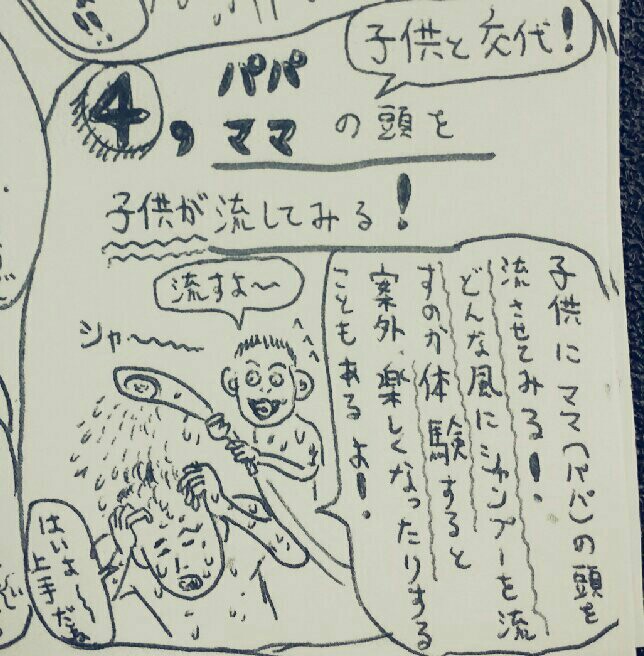 子供と交代!
4,
パパ
ママ
の頭を
子供が流してみる!
子供にママ(パパ)の頭を
流させてみる!、
どんな風にシャンプーを流
すのか体験すると
案外、楽しくなったりする
こともあるよ!、
流すよ〜
シャ〜
はいよ〜
上手だぁ